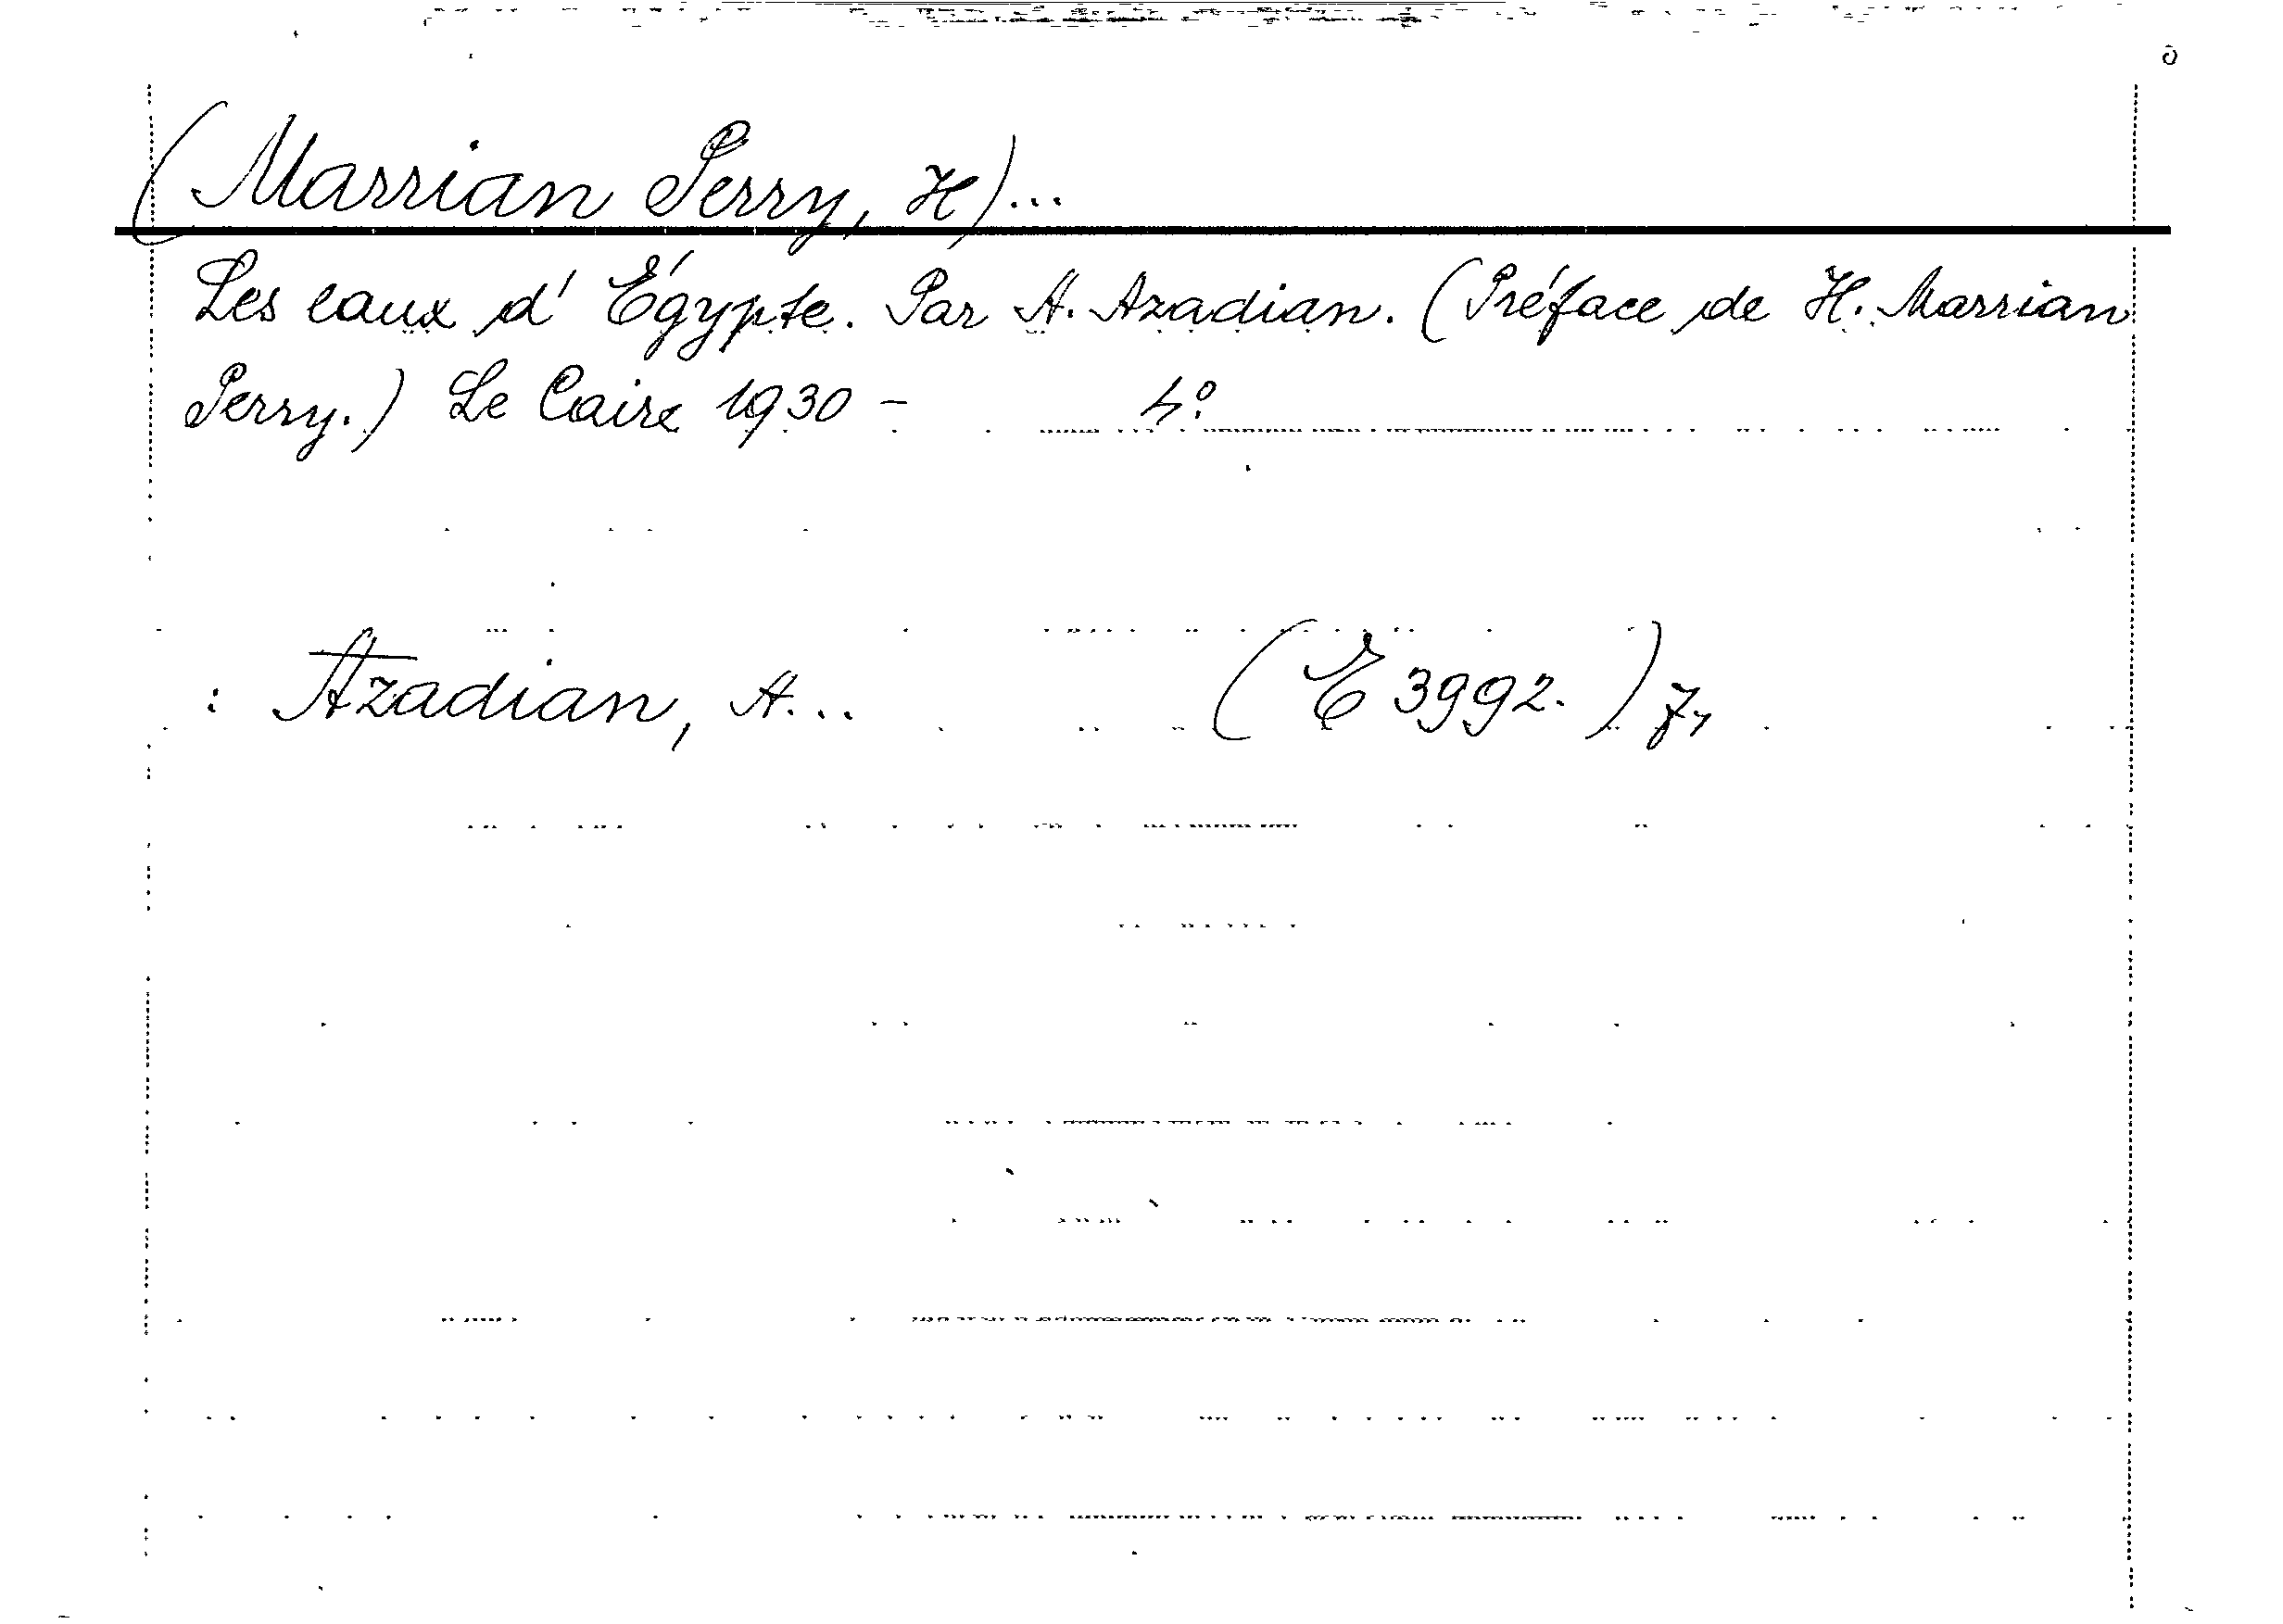 (Marrian Perry, H)...
Les eaux d'Égypte. Par A. Azadian. (Préface de H. Marrian
Perry.) Le Caire 1930 - 4°.
: Azadian, A... (E 3992.)